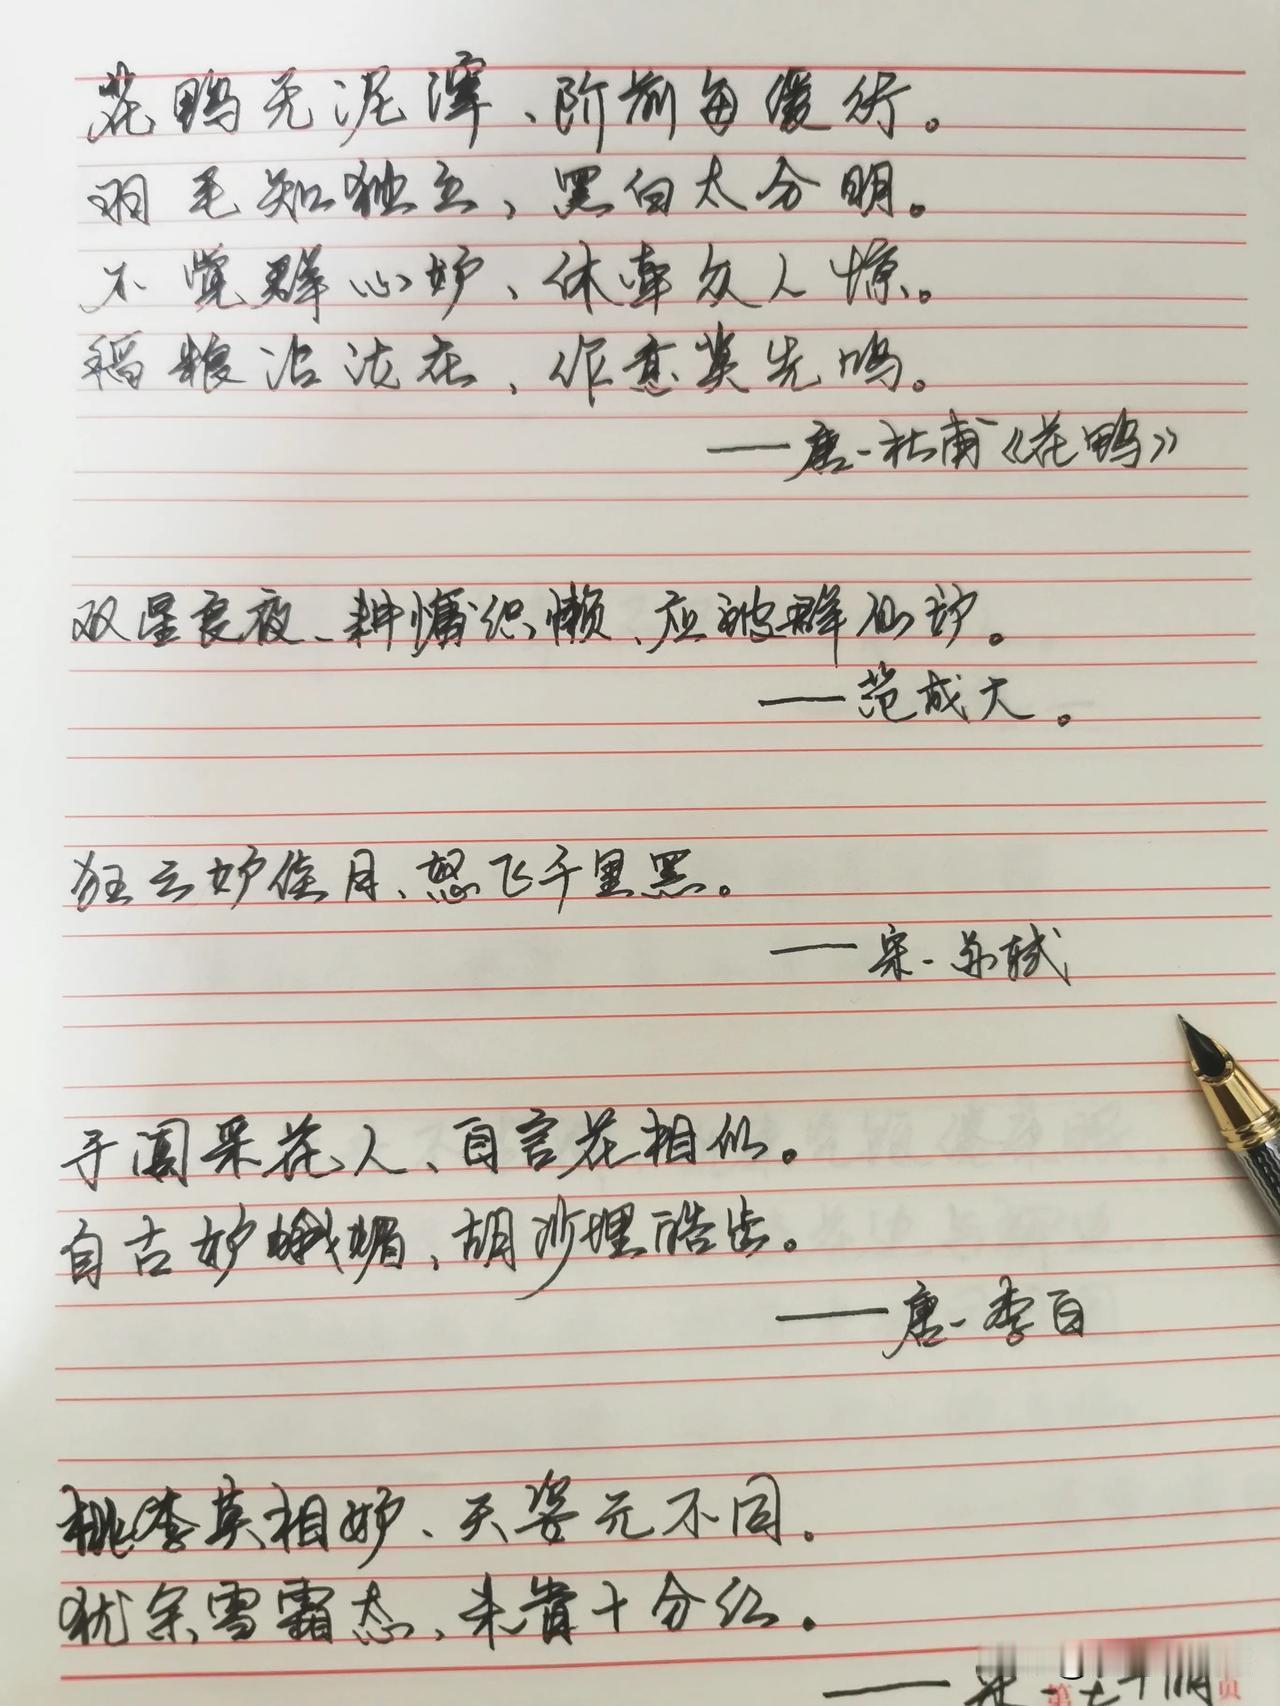 花鸭无泥滓、阶前每缓行。
羽毛知独立，黑白太分明。
不觉群心妒、休牵众人惊。
稻粮沾汝在，作意莫先鸣。
——唐-杜甫《花鸭》
双星良夜、耕慵织懒、应被群仙妒。
——范成大。
狂云妒佳月、怒飞千里黑。
——宋-苏轼
于阗采花人、自言花相似。
自古妒蛾媚，胡沙埋皓齿。
——唐-李白
桃李莫相妒、天姿元不同。
犹余雪霜态、未肯十分红。
——宋-王十朋
第 页